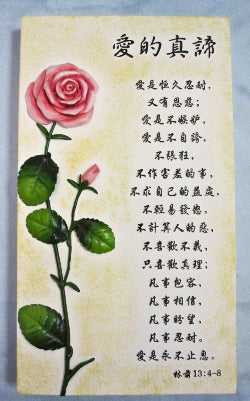 愛的真諦
愛是恒久忍耐,
又有恩慈;
愛是不嫉妒,
愛是不自誇,
不張狂,
不作害羞的事,
不求自己的益處,
不輕易發怒,
不計算人的惡,
不喜歡不義,
只喜歡真理;
凡事包容,
凡事相信,
凡事盼望,
凡事忍耐。
愛是永不止息。
林前13:4-8